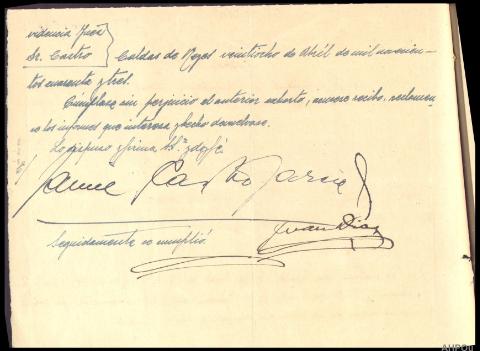 videncia Juez
Sr. Castro Caldas de Reyes veintiocho de Abril de mil novecien-
tos cuarenta y tres.
Cumplase sin perjuicio el anterior exhorto, acusese recibo, reclamen-
se los informes que interesa y hecho devuelvase.
Lo dispuso y firma S.Sª y doy fé
Jaime Castro Garcia
Juan Diaz
Seguidamente se cumplió.
AHPOu